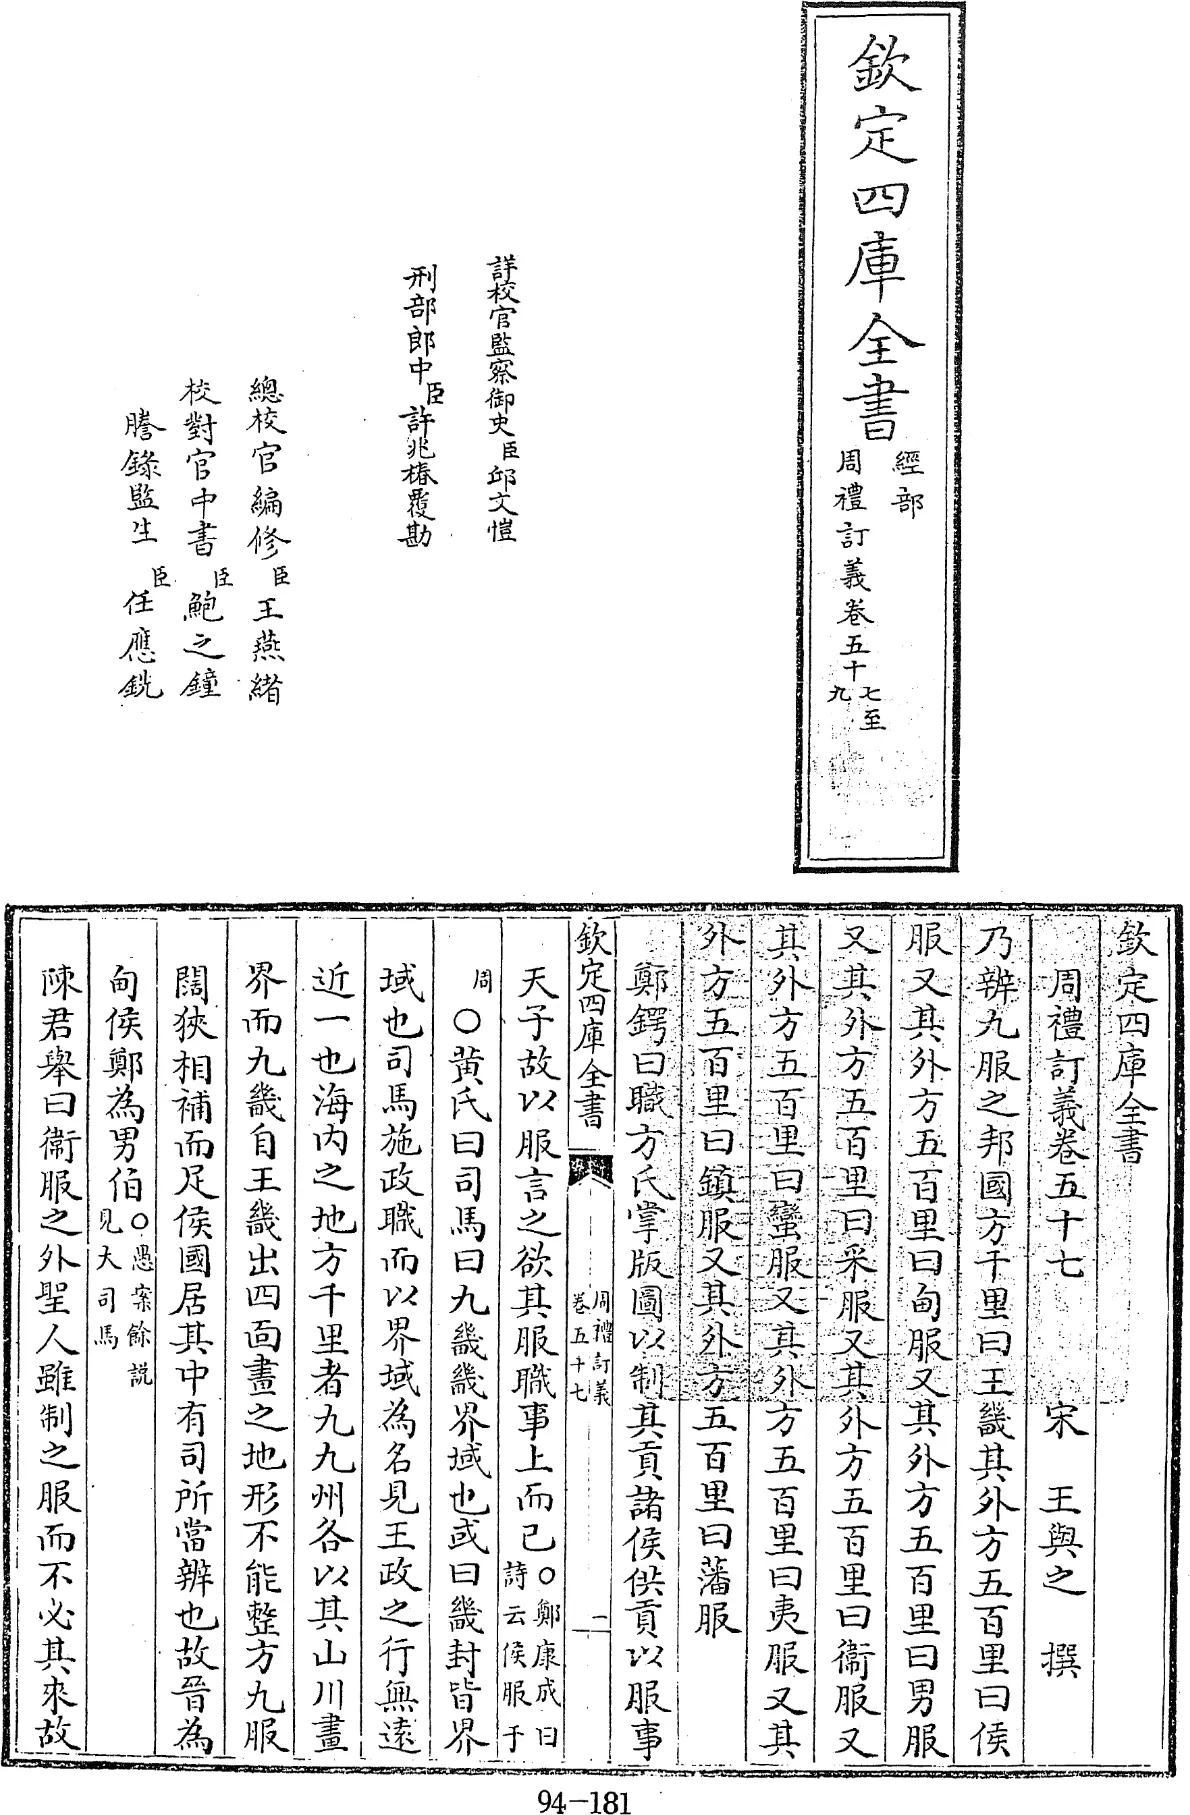 欽定四庫全書
經部
周禮訂義卷五十七至九
詳校官監察御史臣邱文愷
刑部郎中臣許兆椿覆勘
總校官編修臣王燕緒
校對官中書臣鮑之鐘
謄錄監生臣任應銑
欽定四庫全書
周禮訂義卷五十七 宋 王與之 撰
乃辨九服之邦國方千里曰王畿其外方五百里曰侯
服又其外方五百里曰甸服又其外方五百里曰男服
又其外方五百里曰采服又其外方五百里曰衛服又
其外方五百里曰蠻服又其外方五百里曰夷服又其
外方五百里曰鎮服又其外方五百里曰藩服
鄭鍔曰職方氏掌版圖以制其貢諸侯供貢以服事
欽定四庫全書
周禮訂義
卷五十七
二
天子故以服言之欲其服職事上而已○鄭康成曰詩云侯服于
周○黄氏曰司馬曰九畿畿界域也或曰畿封皆界
域也司馬施政職而以界域為名見王政之行無遠
近一也海内之地方千里者九九州各以其山川畫
界而九畿自王畿出四面畫之地形不能整方九服
闊狹相補而足侯國居其中有司所當辨也故晉為
甸侯鄭為男伯○愚案餘説見大司馬
陳君舉曰衛服之外聖人雖制之服而不必其來故
94-181